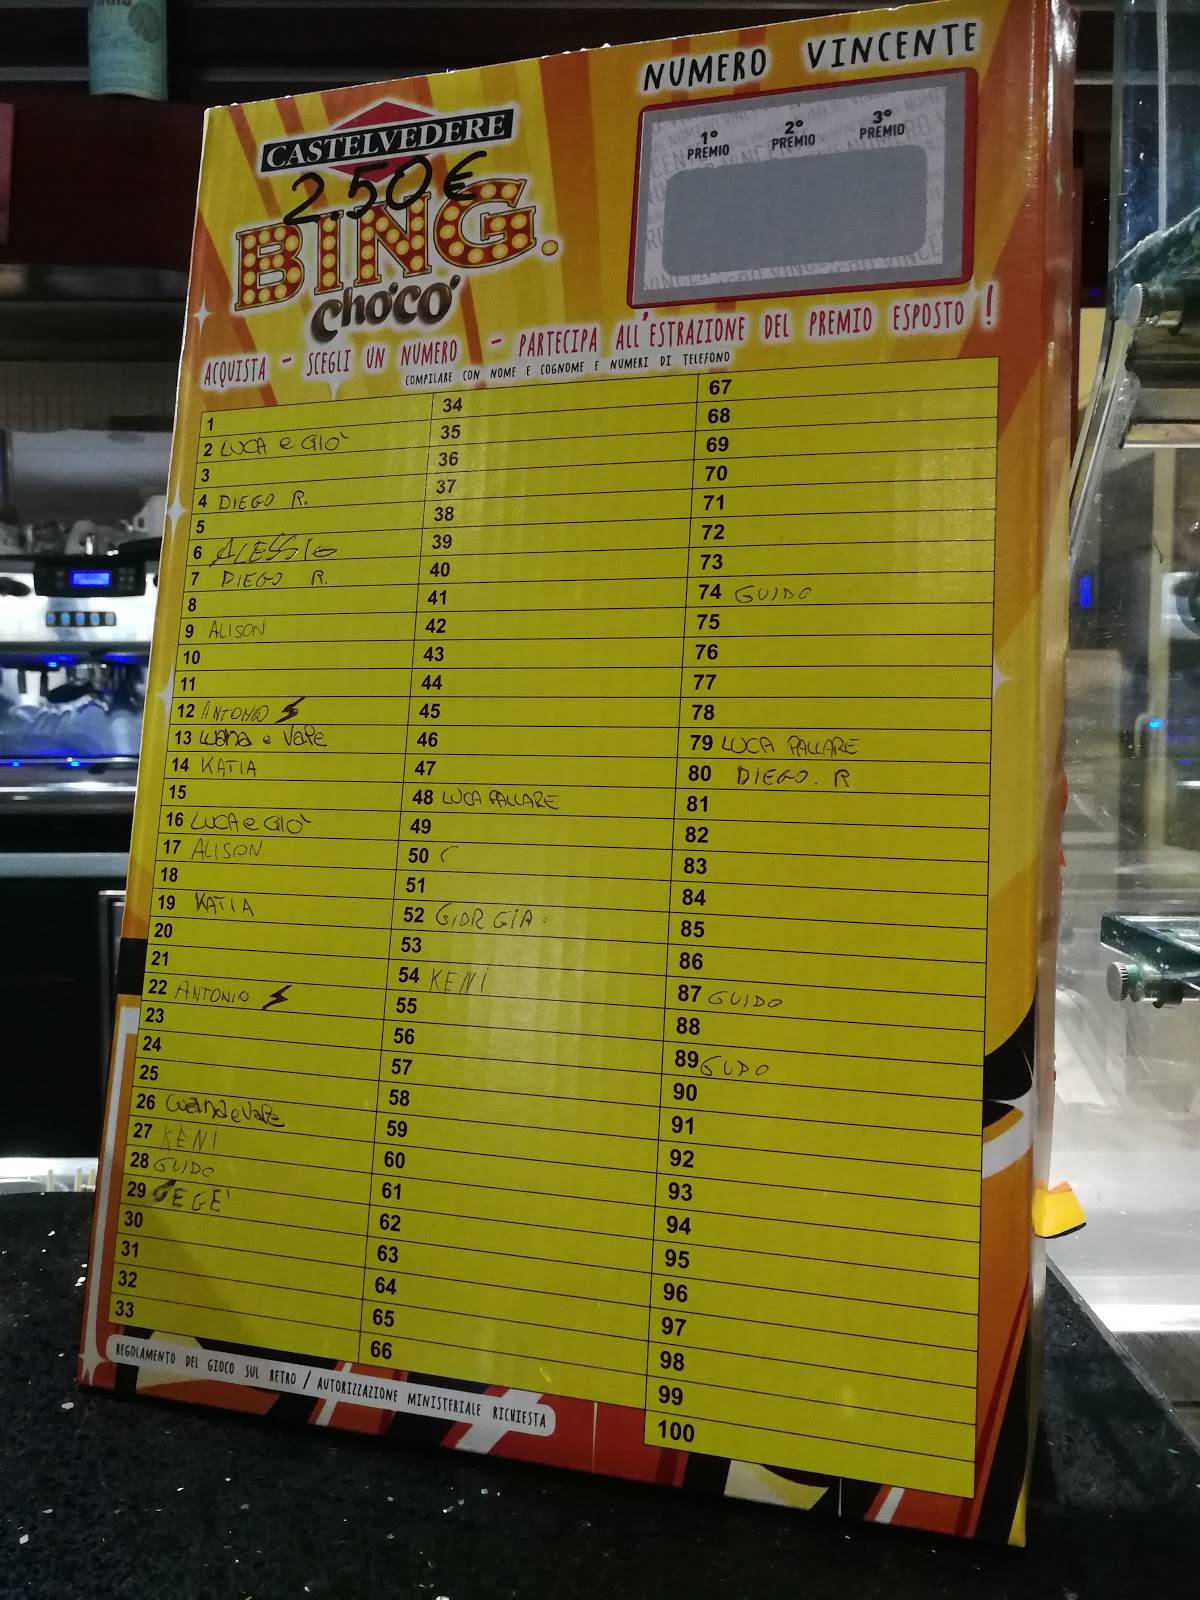 NUMERO VINCENTE
1° PREMIO 2° PREMIO 3° PREMIO
CASTELVEDERE
2.50€
BING.
choco'
ACQUISTA - SCEGLI UN NUMERO - PARTECIPA ALL'ESTRAZIONE DEL PREMIO ESPOSTO !
COMPILARE CON NOME E COGNOME E NUMERI DI TELEFONO
1
2 LUCA e GIO'
3
4 DIEGO R.
5
6 ALESSIO
7 DIEGO R.
8
9 ALISON
10
11
12 ANTONIO
13 LUANA e VAPE
14 KATIA
15
16 LUCA e GIO'
17 ALISON
18
19 KATIA
20
21
22 ANTONIO
23
24
25
26 LUANA e VAPE
27 KENI
28 GUIDO
29 GEGE'
30
31
32
33
34
35
36
37
38
39
40
41
42
43
44
45
46
47
48 LUCA PALLARE
49
50
51
52 GIORGIA
53
54 KENI
55
56
57
58
59
60
61
62
63
64
65
66
67
68
69
70
71
72
73
74 GUIDO
75
76
77
78
79 LUCA PALLARE
80 DIEGO. R
81
82
83
84
85
86
87 GUIDO
88
89 GUIDO
90
91
92
93
94
95
96
97
98
99
100
REGOLAMENTO DEL GIOCO SUL RETRO / AUTORIZZAZIONE MINISTERIALE RICHIESTA